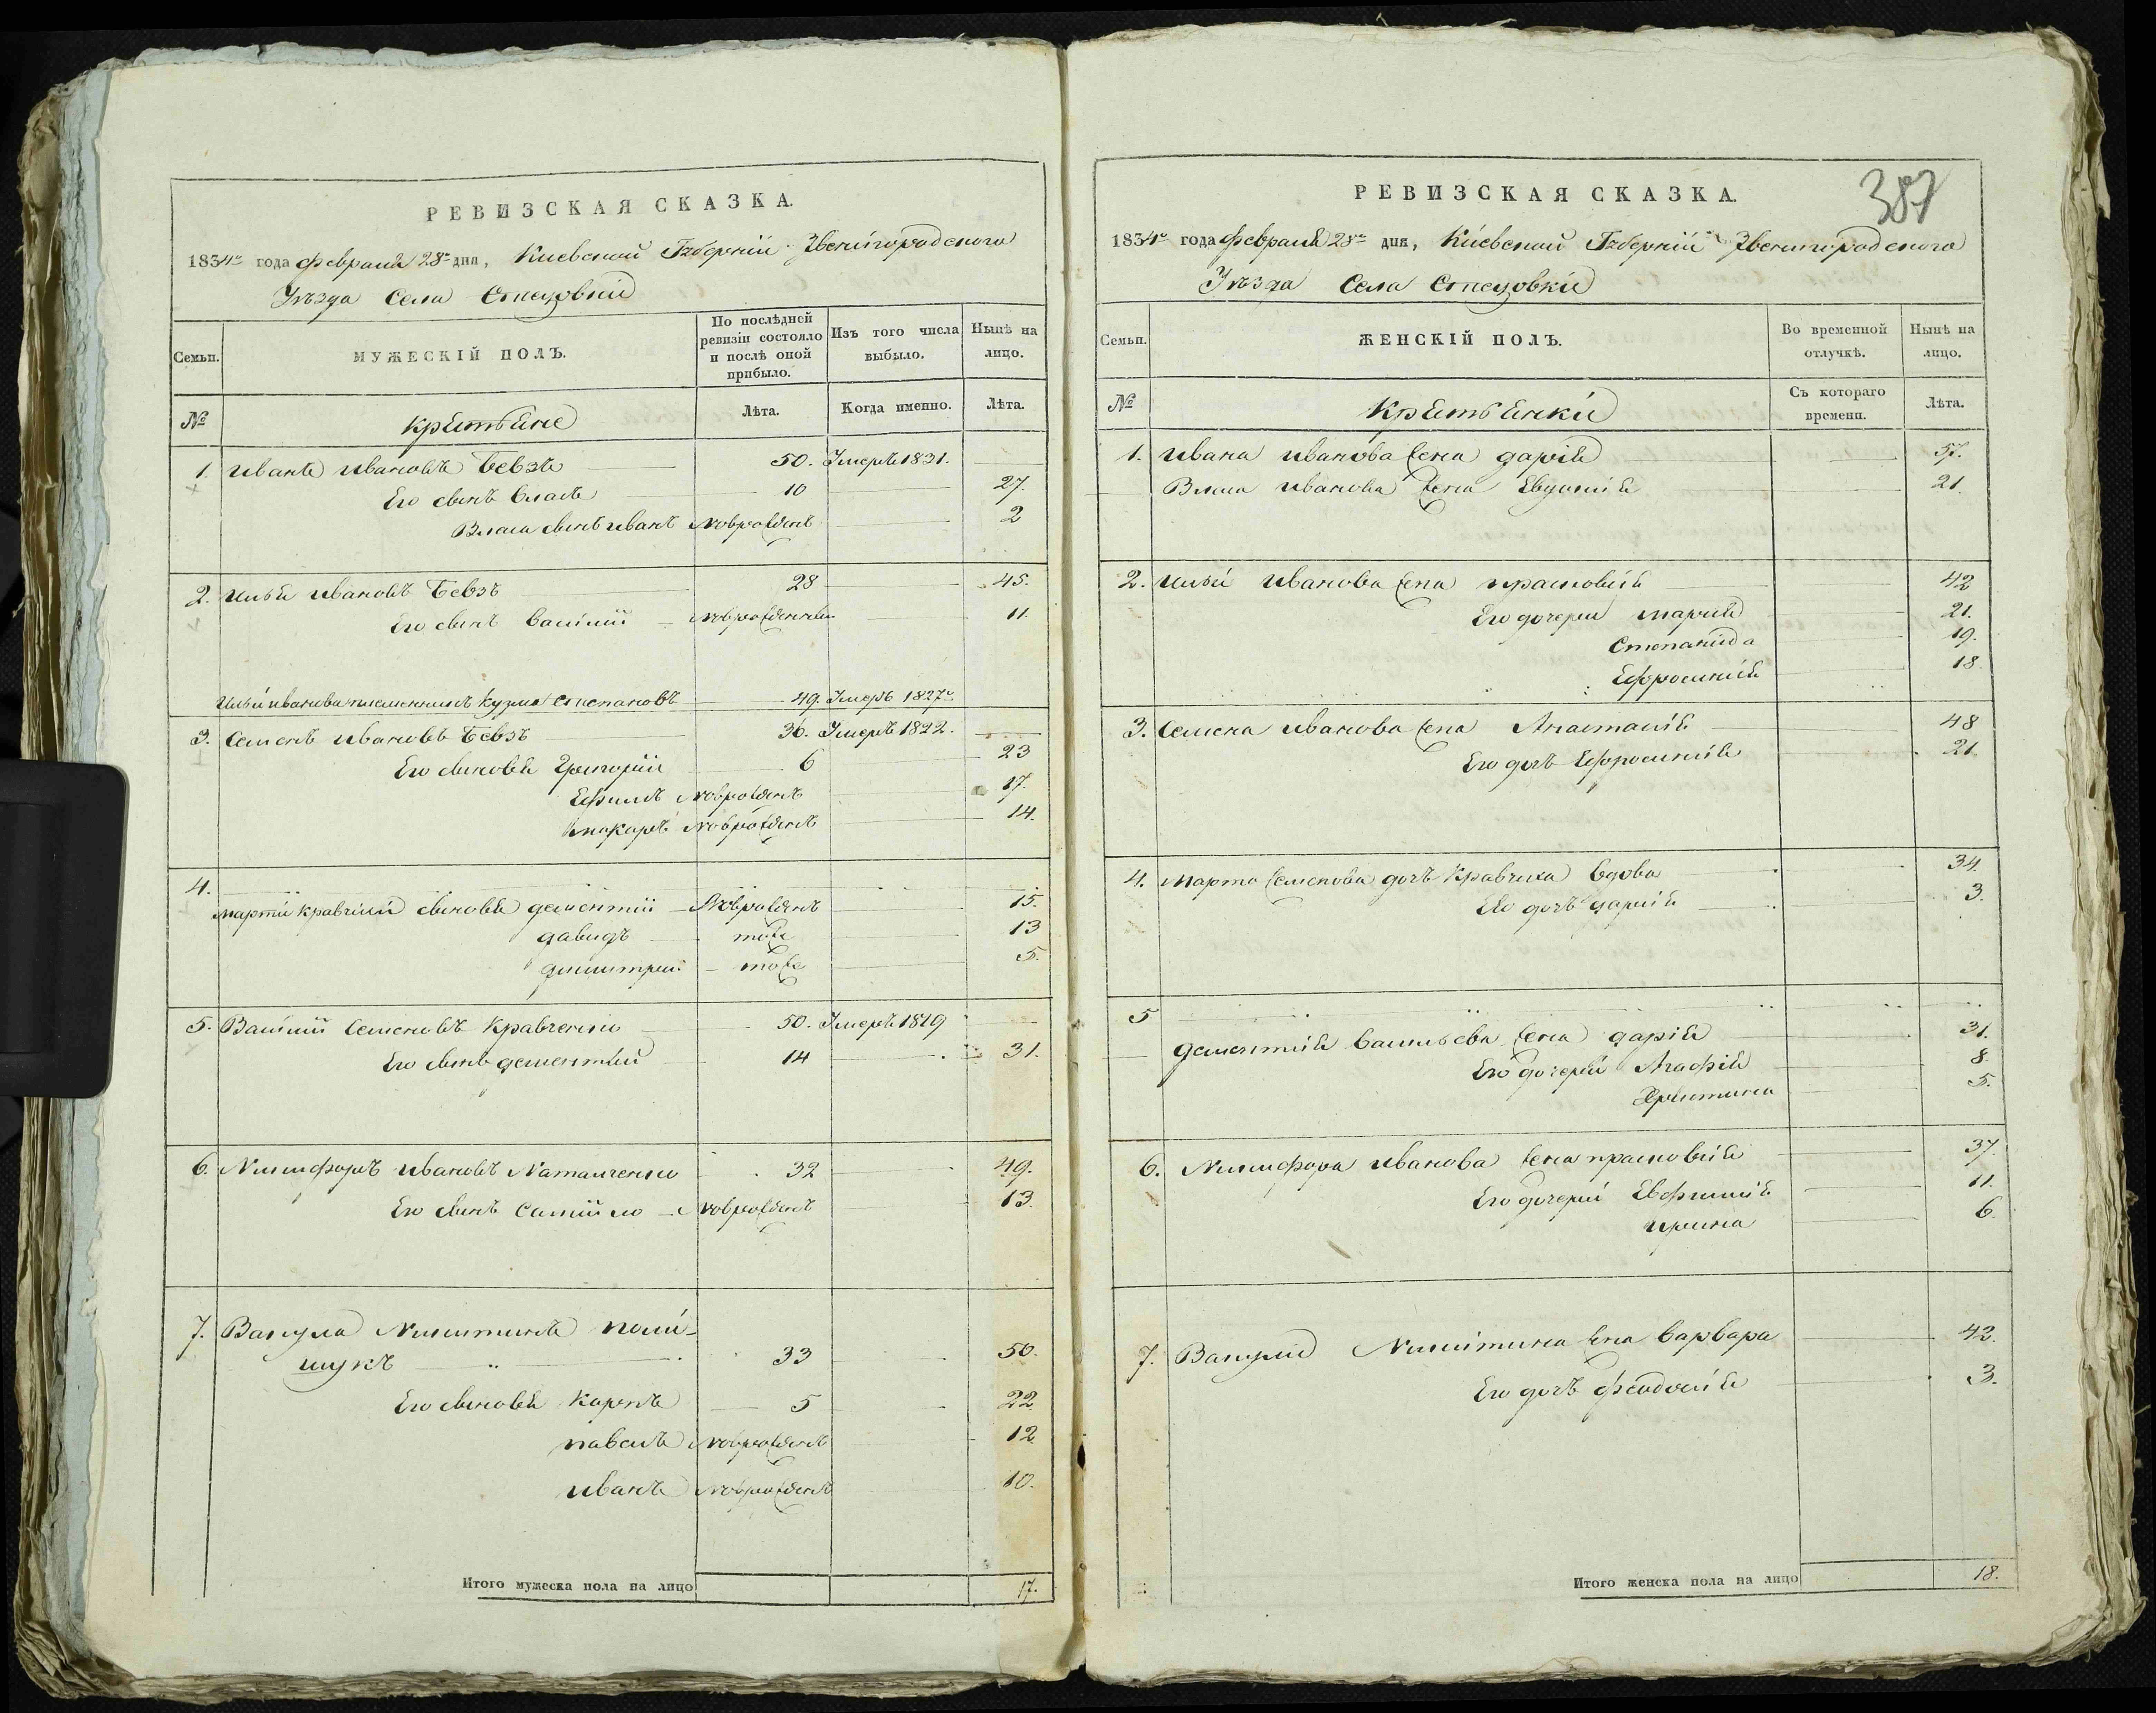 РЕВИЗСКАЯ СКАЗКА.
1834го года февраля 28го дня, Киевской Губернии Звенигородского
Уѣзда Села Стецовки
Семьи.
МУЖЕСКІЙ ПОЛЪ.
По послѣдней ревизіи состояло и послѣ оной прибыло.
Изъ того числа выбыло.
Нынѣ на лицо.
№
Крестьяне
Лѣта.
Когда именно.
Лѣта.
1. Иванъ Ивановъ Бевзъ 50. Умеръ 1831.
Его сынъ Власъ 10 27.
Власа сынъ Иванъ Новрожденъ 2
2. Илья Ивановъ Бевзъ 28 45.
Его сынъ Василий Новрожденны 11.
Ильи Иванова племенникъ Кузма Степановъ 49. Умеръ 1827го
3. Семенъ Ивановъ Бевзъ 36. Умеръ 1822.
Его сыновья Григорий 6 23
Ефимъ Новрожденъ 17.
Макаръ Новрожденъ 14.
4.
Марти Кравчихи сыновья Дементии Новрожденъ 15.
Давидъ тоже 13
Димитрей тоже 5.
5. Василий Семеновъ Кравченко 50. Умеръ 1819
Его сынъ Дементий 14 31.
6. Никифоръ Ивановъ Наталченко 32 49.
Его сынъ Самийло Новрожденъ 13.
7. Вакула Никитинъ Поли-
щукъ 33 50.
Его сыновья Карпъ 5 22.
Павелъ Новрожденъ 12.
Иванъ Новрожденъ 10.
Итого мужеска пола на лицо 17.
387
РЕВИЗСКАЯ СКАЗКА.
1834го года февраля 28го дня, Киевской Губернии Звенигородского
Уѣзда Села Стецовки
Семьи.
ЖЕНСКІЙ ПОЛЪ.
Во временной отлучкѣ.
Нынѣ на лицо.
№
Крестьянки
Съ котораго времени.
Лѣта.
1. Ивана Иванова жена Дария 57.
Власа Иванова жена Евдокия 21.
2. Ильи Иванова жена Прасковия 42
Его дочери Мария 21.
Степанида 19.
Ефросиния 18.
3. Семена Иванова жена Анастасия 48
Его дочь Ефросиния 21.
4. Марта Семенова дочь Кравчиха вдова 34.
Ея дочь Дария 3.
5
Дементия Васильева жена Дария 31.
Его дочери Агафия 8.
Христина 5.
6. Никифора Иванова жена Прасковия 37.
Его дочери Евфимия 11.
Ирина 6.
7. Вакули Никитина жена Варвара 42.
Его дочь Феодосия 3.
Итого женска пола на лицо 18.